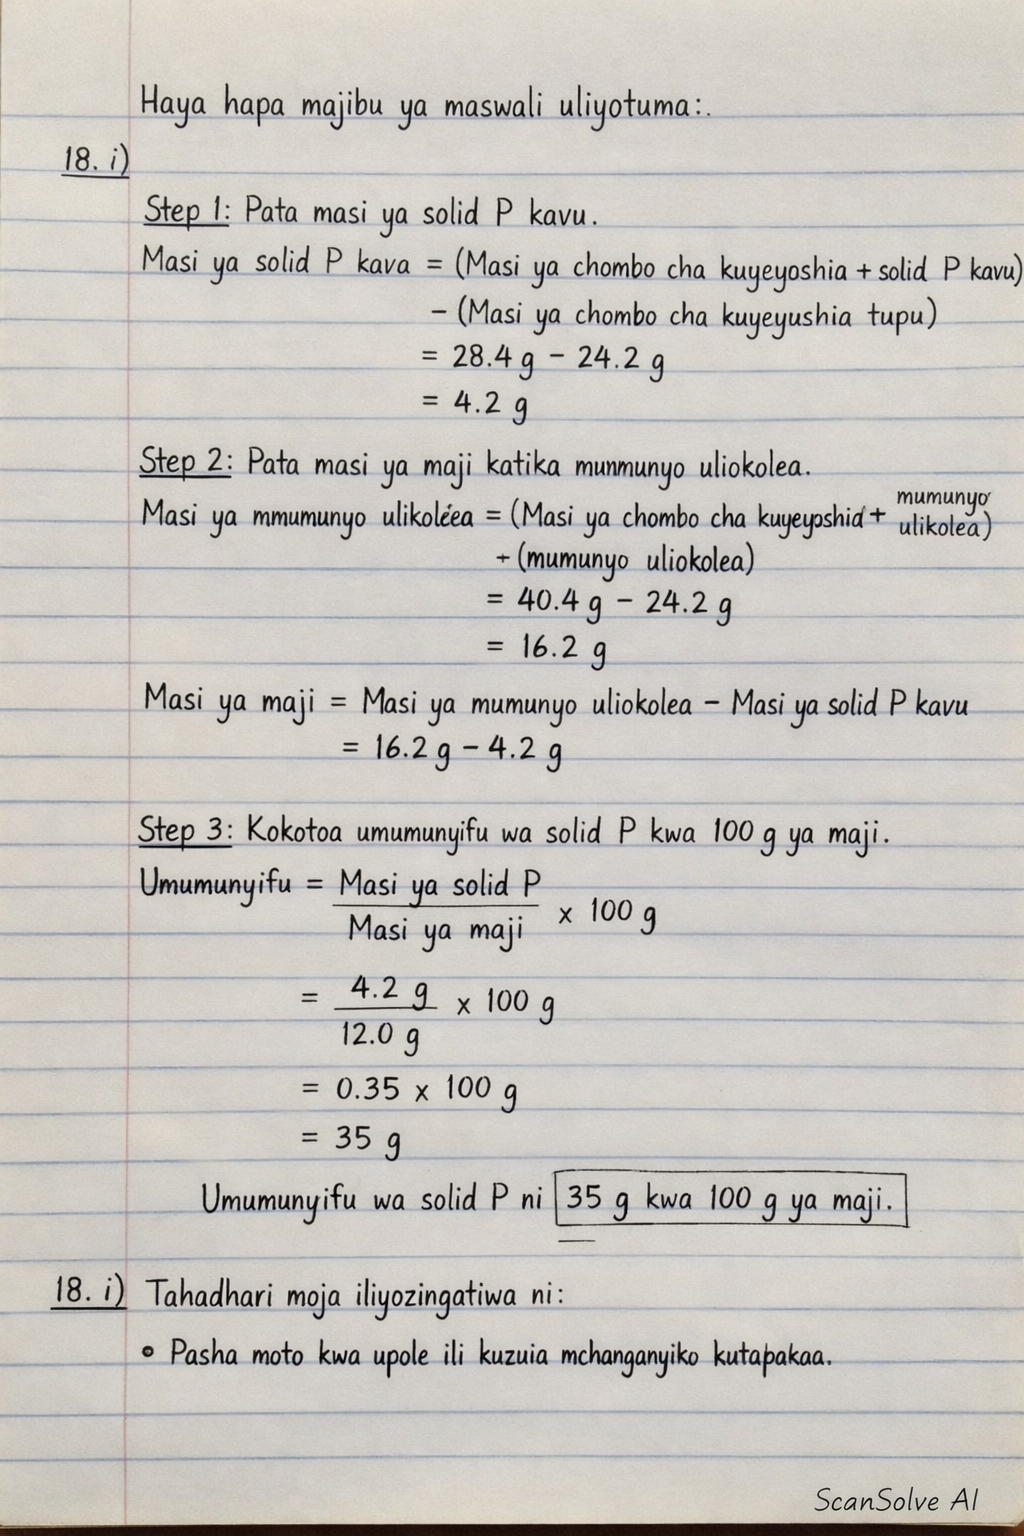 Haya hapa majibu ya maswali uliyotuma:.
18. i)
Step 1: Pata masi ya solid P kavu.
Masi ya solid P kava = (Masi ya chombo cha kuyeyoshia + solid P kavu)
– (Masi ya chombo cha kuyeyushia tupu)
= 28.4 g – 24.2 g
= 4.2 g
Step 2: Pata masi ya maji katika munmunyo uliokolea.
Masi ya mmumunyo ulikoléea = (Masi ya chombo cha kuyeyoshia + mumunyo ulikolea)
+ (mumunyo uliokolea)
= 40.4 g – 24.2 g
= 16.2 g
Masi ya maji = Masi ya mumunyo uliokolea – Masi ya solid P kavu
= 16.2 g – 4.2 g
Step 3: Kokotoa umumunyifu wa solid P kwa 100 g ya maji.
Umumunyifu = Masi ya solid P
Masi ya maji x 100 g
= 4.2 g x 100 g
12.0 g
= 0.35 x 100 g
= 35 g
Umumunyifu wa solid P ni 35 g kwa 100 g ya maji.
18. i) Tahadhari moja iliyozingatiwa ni:
• Pasha moto kwa upole ili kuzuia mchanganyiko kutapakaa.
ScanSolve AI